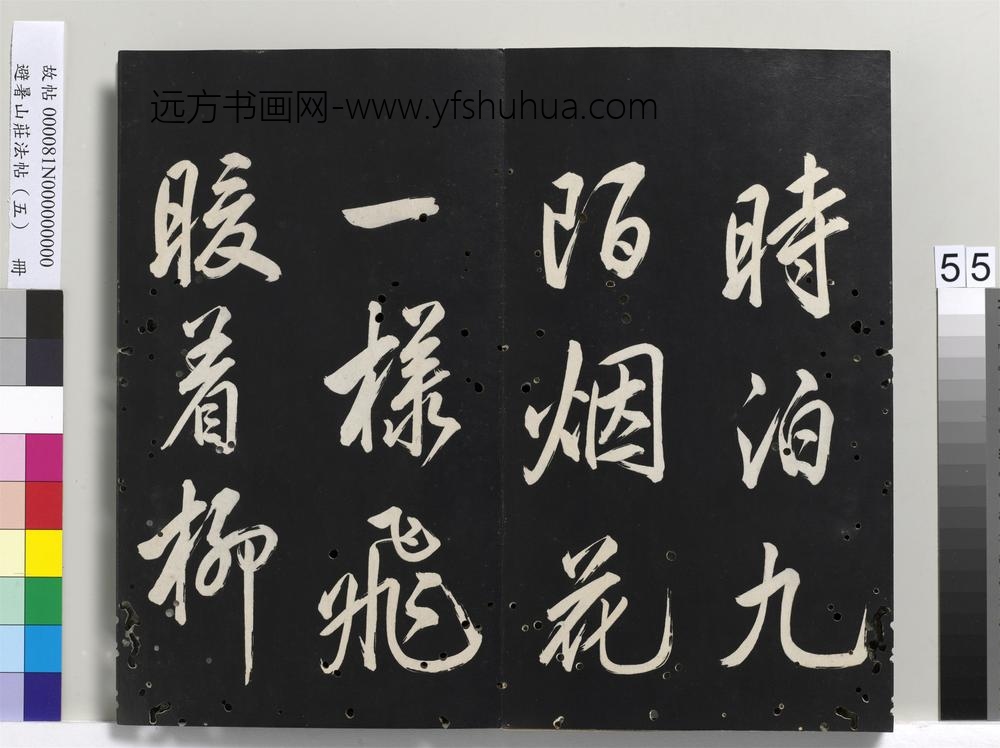 時泊九
陌烟花
一樣飛
暖着柳
远方书画网-www.yfshuhua.com
故帖000081N000000000
避暑山莊法帖（五） 冊
55